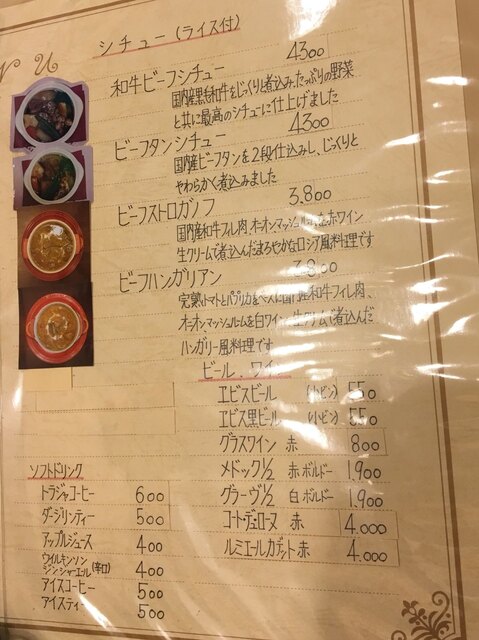 シチュー (ライス付)
和牛ビーフシチュー 4300
国内産黒毛和牛をじっくりと煮込み、たっぷりの野菜
と共に最高のシチューに仕上げました
ビーフタンシチュー 4300
国内産ビーフタンを2段仕込みし、じっくりと
やわらかく煮込みました
ビーフストロガノフ 3,800
国内産和牛フィレ肉、オニオンマッシュルーム、赤ワイン
生クリームで煮込んだまろやかなロシア風料理です
ビーフハンガリアン 3,800
完熟トマトとパプリカをベースに国内産和牛フィレ肉、
オニオンマッシュルームを白ワイン、生クリームで煮込んだ
ハンガリー風料理です
ビール、ワイン
エビスビール (小ビン) 550
エビス黒ビール (小ビン) 550
グラスワイン 赤 800
メドック1/2 赤ボルドー 1,900
グラーヴ1/2 白ボルドー 1,900
コートデュローヌ 赤 4,000
ルミエールカデット赤 4,000
ソフトドリンク
トラジャコーヒー 600
ダージリンティー 500
アップルジュース 400
ウイルキンソン
ジンジャーエール(辛口) 400
アイスコーヒー 500
アイスティー 500